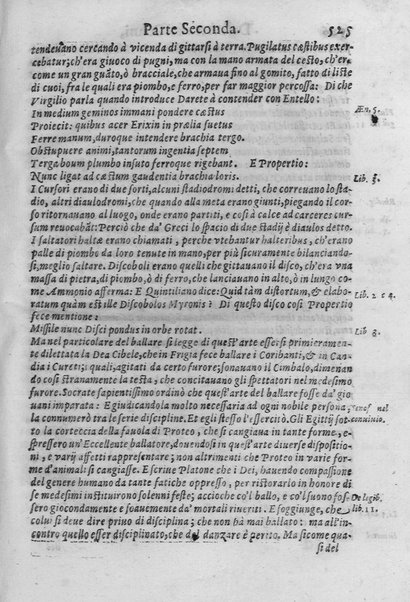 Parte Seconda. 525
tendeuano cercando à vicenda di gittarsi à terra. Pugilatus cæstibus exer-
cebatur; ch'era giuoco di pugni, ma con la mano armata del cesto, ch'era
come un gran guãto, ò bracciale, che armaua fino al gomito, fatto di liste
di cuoi, fra le quali era piombo, e ferro, per far maggior percossa: Di che
Virgilio parla quando introduce Darete à contender con Entello: Æn. 5.
In medium geminos immani pondere cæstus
Proiecit: quibus acer Erixin in prælia suetus
Ferre manum, duroque intendere brachia tergo.
Obstupuere animi, tantorum ingentia septem
Terga boum plumbo insuto ferroque rigebant. E Propertio:
Nunc ligat ad cæstum gaudentia brachia loris. Lib. 3.
I Cursori erano di due sorti, alcuni stadiodromi detti, che correuano lo sta-
dio, altri diaulodromi, che quando alla meta erano giunti, piegando il cor-
so ritornauano al luogo, onde erano partiti, e cosi à calce ad carceres cur-
sum reuocabãt: Perciò che da' Greci lo spacio di due stadij è diaulos detto.
I saltatori haltæ erano chiamati, perche vtebantur halteribus, ch'erano
palle di piombo da loro tenute in mano, per più sicuramente bilanciando-
si, meglio saltare. Discoboli erano quelli che gittauano il disco, ch'era vna
massa di pietra, di piombo, ò di ferro, che lanciauano in alto, ò in lungo co-
me Ammonio afferma: E Quintiliano dice: Quid tàm distortum, & elabo-
ratum quàm est ille Discobolos Myronis? Di questo disco cosi Propertio Lib. 2 c 4.
fece mentione:
Missile nunc Disci pondus in orbe rotat. Lib 3.
Ma nel particolare del ballare si legge di quest'arte essersi primieramen-
te dilettata la Dea Cibele, che in Frigia fece ballare i Coribanti, & in Can-
dia i Cureti; quali, agitati da certo furore; sonauano il Cimbalo, dimenan-
do cosi stranamente la testa, che concitauano gli spettatori nel medesimo
furore. Socrate sapientissimo ordinò che quest'arte del ballare fosse da' gio
uani imparata: E giudicandola molto necessaria ad ogni nobile persona,
la connumerò tra le serie discipline. Et egli stesso l'essercitò. Gli Egittij sot-
to la corteccia della fauola di Proteo, che si cangiaua in tante forme, e-
spressero un'Eccellente ballatore, douendosi in quest'arte diuerse dispositio-
ni, e varij affetti rappresentare; non altrimenti che Proteo in varie for-
me d'animali si cangiasse. E scriue Platone che i Dei, hauendo compassione
del genere humano da tante fatiche oppresso, per ristorarlo in honore di
se medesimi instituirono solenni feste; accioche co'l ballo, e co'l suono fos- De legib.
sero giocondamente e soauemente da' mortali riueriti. E soggiunge, che lib. 11.
colui si deue dire priuo di disciplina; che non hà mai ballato: ma all'in-
contro quello esser disciplinato, che del danzare è perito. Ma si come quasi
si del